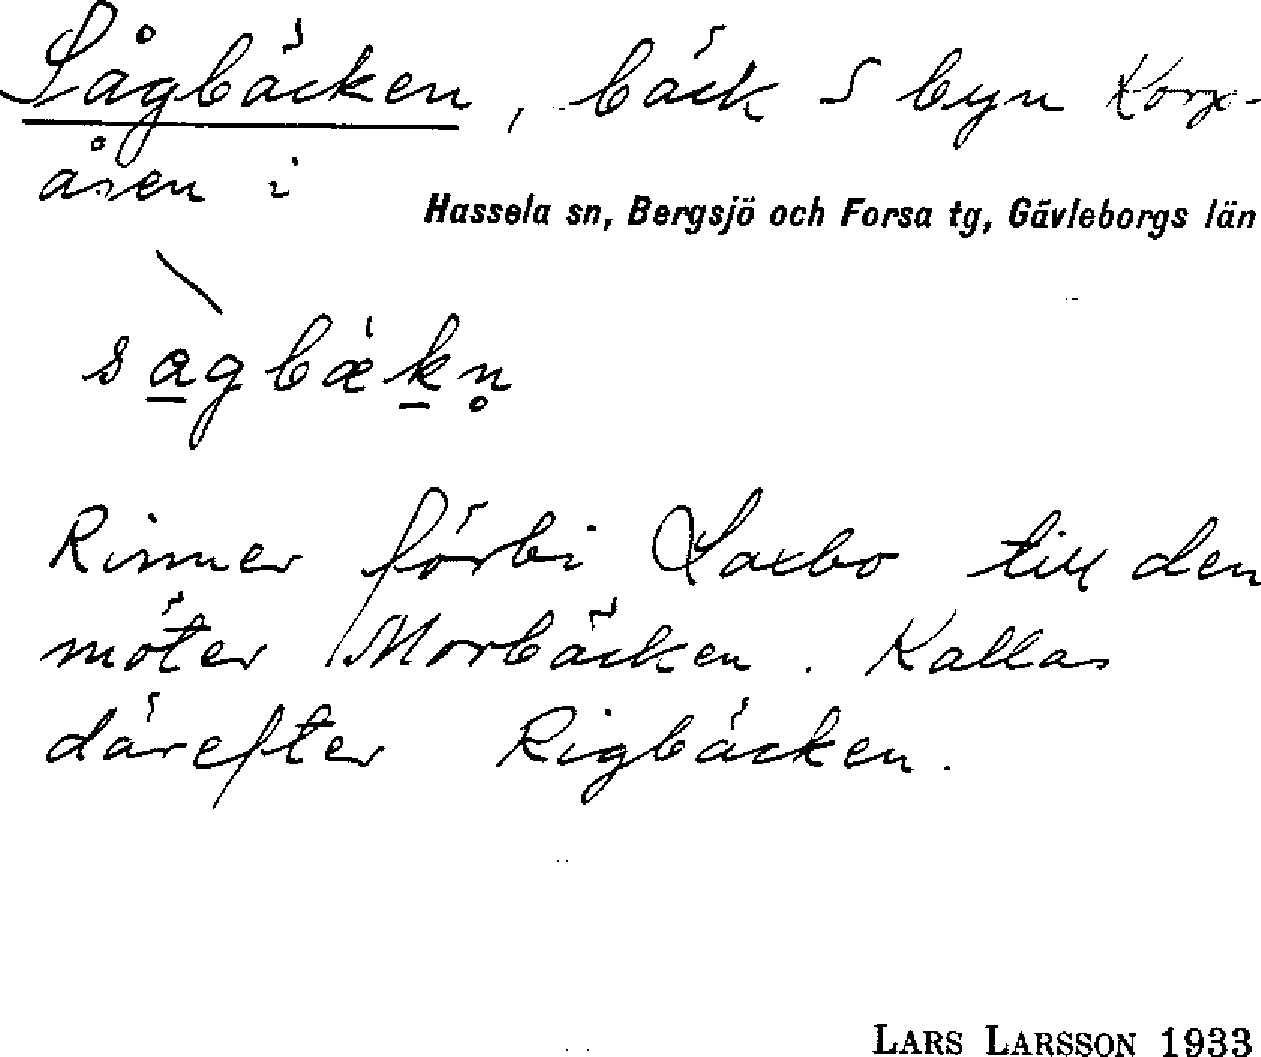 Sågbäcken, bäck S byn
åsen i
Hassela sn, Bergsjö och Forsa tg, Gävleborgs län
sagbækn̥
Rinner förbi Laxbo till den
möter Morbäcken. Kallas
därefter Rigbäcken.
LARS LARSSON 1933